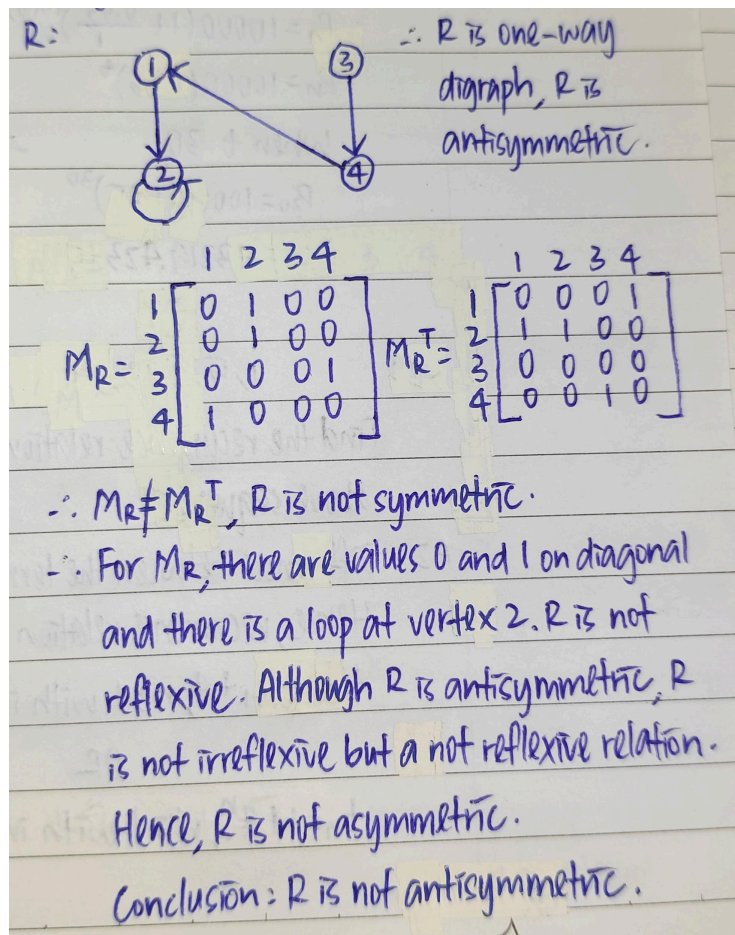 R:
1
3
2
4
∴ R is one-way
digraph, R is
antisymmetric.
1 2 3 4
M_R =
1 [0 1 0 0]
2 [0 1 0 0]
3 [0 0 0 1]
4 [1 0 0 0]
1 2 3 4
M_R^T =
1 [0 0 0 1]
2 [1 1 0 0]
3 [0 0 0 0]
4 [0 0 1 0]
∴ M_R ≠ M_R^T, R is not symmetric.
∵ For M_R, there are values 0 and 1 on diagonal
and there is a loop at vertex 2. R is not
reflexive. Although R is antisymmetric, R
is not irreflexive but a not reflexive relation.
Hence, R is not asymmetric.
Conclusion: R is not antisymmetric.